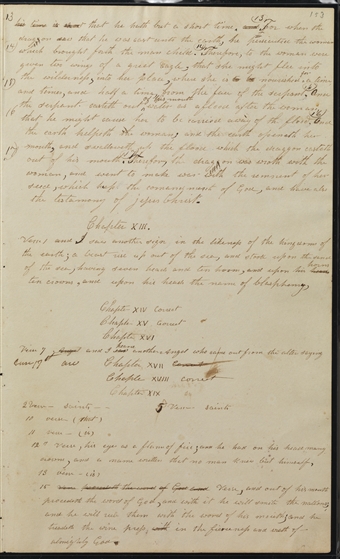 137 103
13 that he hath but a short time. For when the
dragon saw that he was cast unto the earth, he persecuted the woman
14 which brought forth the man child. Therefore, to the woman were
given two wings of a great eagle, that she might flee into
the wilderness, into her place, where she is nourished for a time
15 and times, and half a time, from the face of the serpent. And
the serpent casteth out of his mouth water as a flood after the woman,
16 that he might cause her to be carried away of the flood. And
the earth helpeth the woman, and the earth openeth her
17 mouth, and swalloweth up the flood, which the dragon casteth
out of his mouth. Therefore, the dragon was wroth with the
woman, and went to make war with the remnant of her
seed, which keep the commandment of God, and have
the testimony of Jesus Christ.
Chapter XIII.
Verse 1 and I saw another sign, in the likeness of the kingdoms of
the earth; a beast rise up out of the sea, and stood upon the sand
of the sea, having seven heads and ten horns, and upon his horns
ten crowns, and upon his heads the name of blasphemy.
Chapter XIV correct
Chapter XV correct "
Chapter XVI "
Verse 7 and I heard another angel who came out from the altar saying
are Chapter XVII
Chapter XVIII correct
Chapter XIX
5 Verse saints
12 Verse, his eyes as a flame of fire; and he had on his head many
crowns; and a name written that no man knew but himself,
13 verse (is)
15 Verse, and out of his mouth
proceedeth the word of God, and with it he will smite the nations;
and he will rule them with the word of his mouth; and he
treadeth the wine press, in the fierceness and wrath of
almighty God